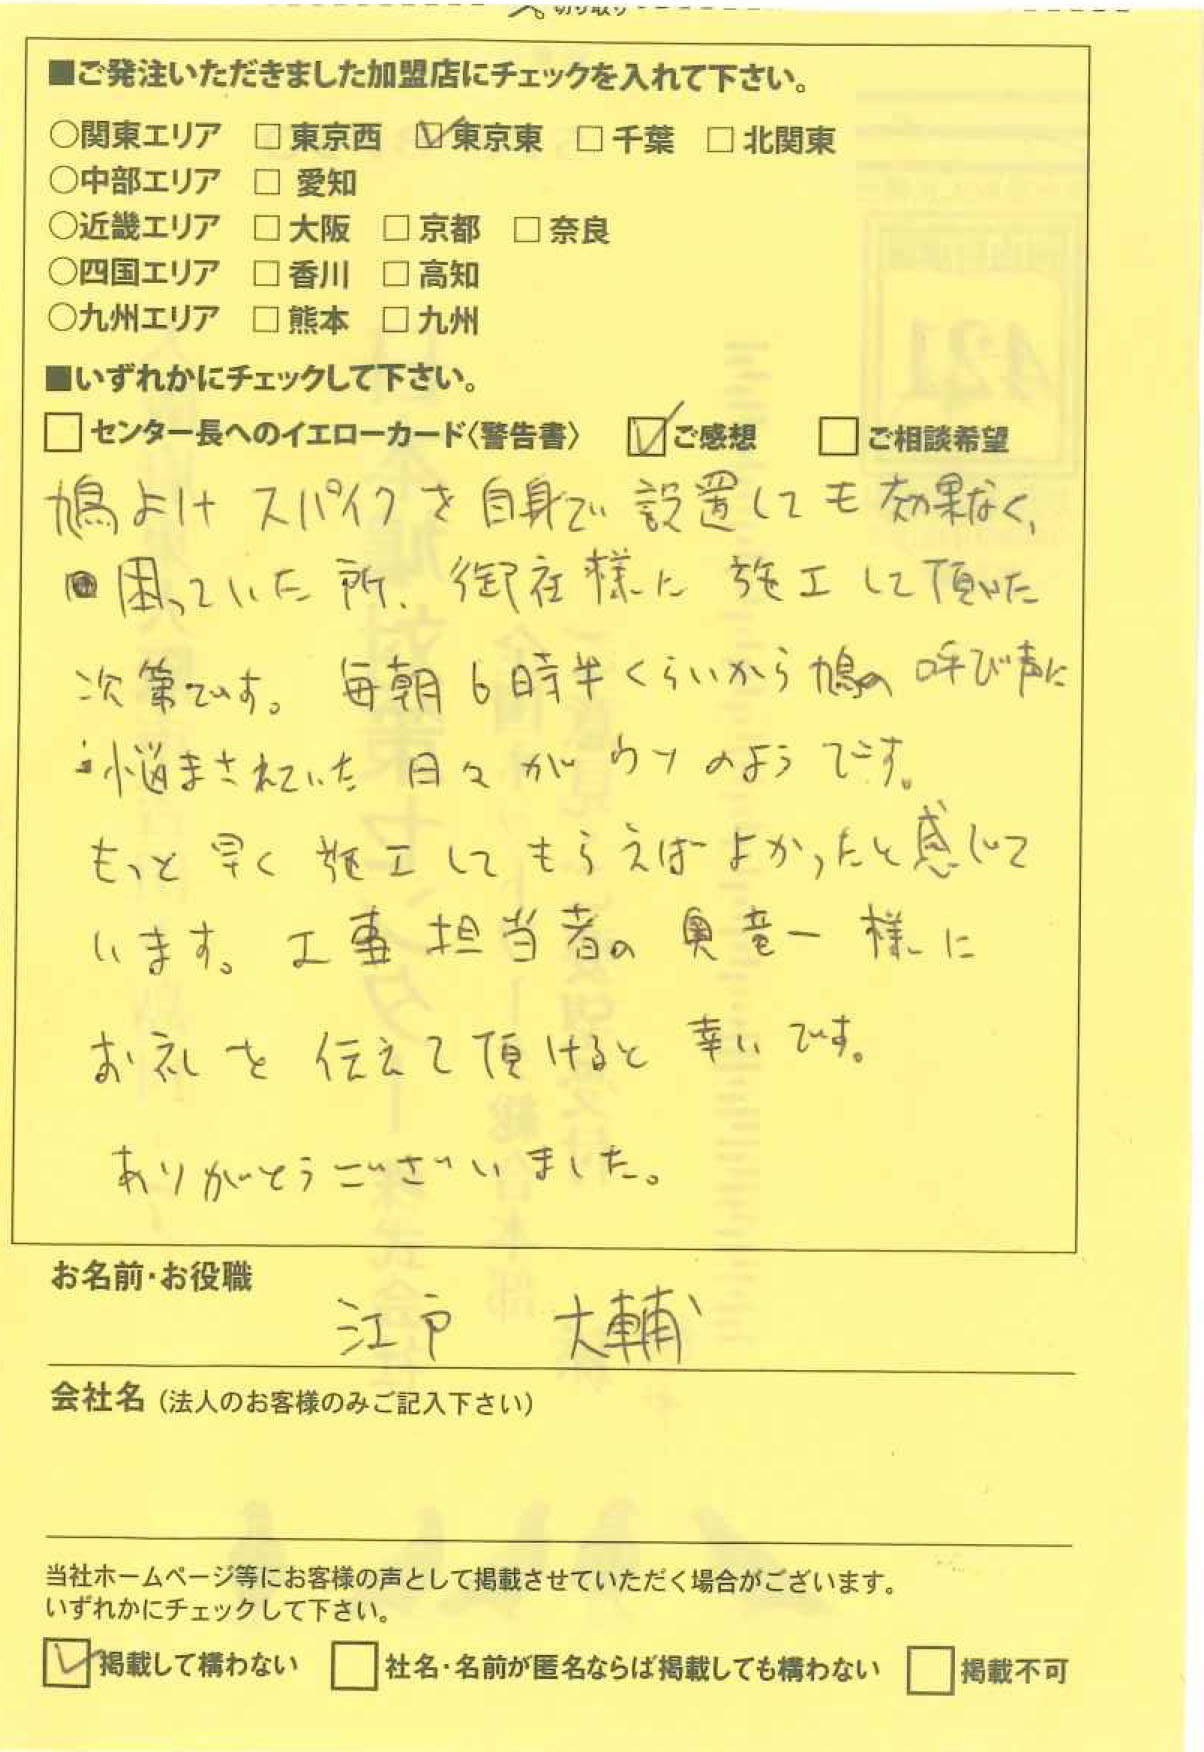 切り取り
■ご発注いただきました加盟店にチェックを入れて下さい。
○関東エリア □ 東京西 ☑ 東京東 □ 千葉 □ 北関東
○中部エリア □ 愛知
○近畿エリア □ 大阪 □ 京都 □ 奈良
○四国エリア □ 香川 □ 高知
○九州エリア □ 熊本 □ 九州
■いずれかにチェックして下さい。
□ センター長へのイエローカード〈警告書〉 ☑ ご感想 □ ご相談希望
鳩よけスパイクを自身で設置しても効果なく、
困っていた所、御社様に施工して頂いた
次第です。毎朝6時半くらいから鳩の呼び声に
悩まされていた日々がウソのようです。
もっと早く施工してもらえばよかったと感じて
います。工事担当者の奥竜一様に
お礼を伝えて頂けると幸いです。
ありがとうございました。
お名前・お役職
江戸 大輔
会社名（法人のお客様のみご記入下さい）
当社ホームページ等にお客様の声として掲載させていただく場合がございます。
いずれかにチェックして下さい。
☑ 掲載して構わない □ 社名・名前が匿名ならば掲載しても構わない □ 掲載不可